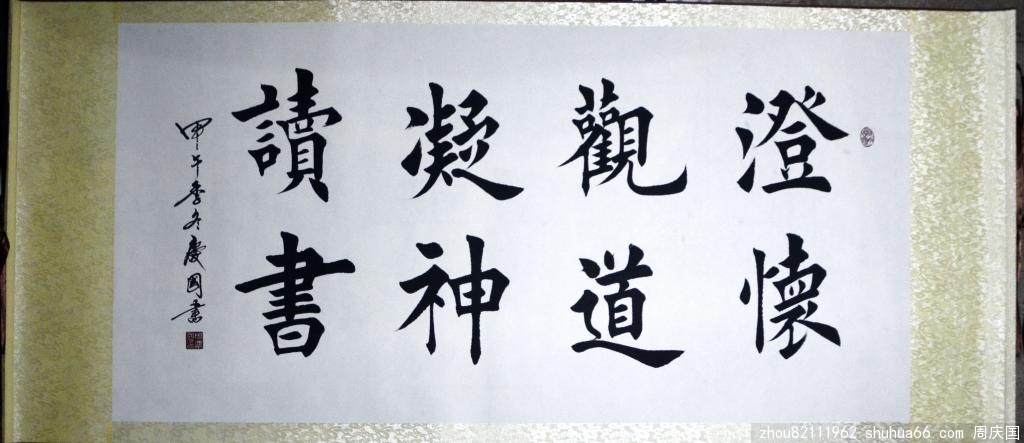 澄懷
觀道
凝神
讀書
甲午季冬慶國書
zhou82111962-shuhua66.com 周庆国